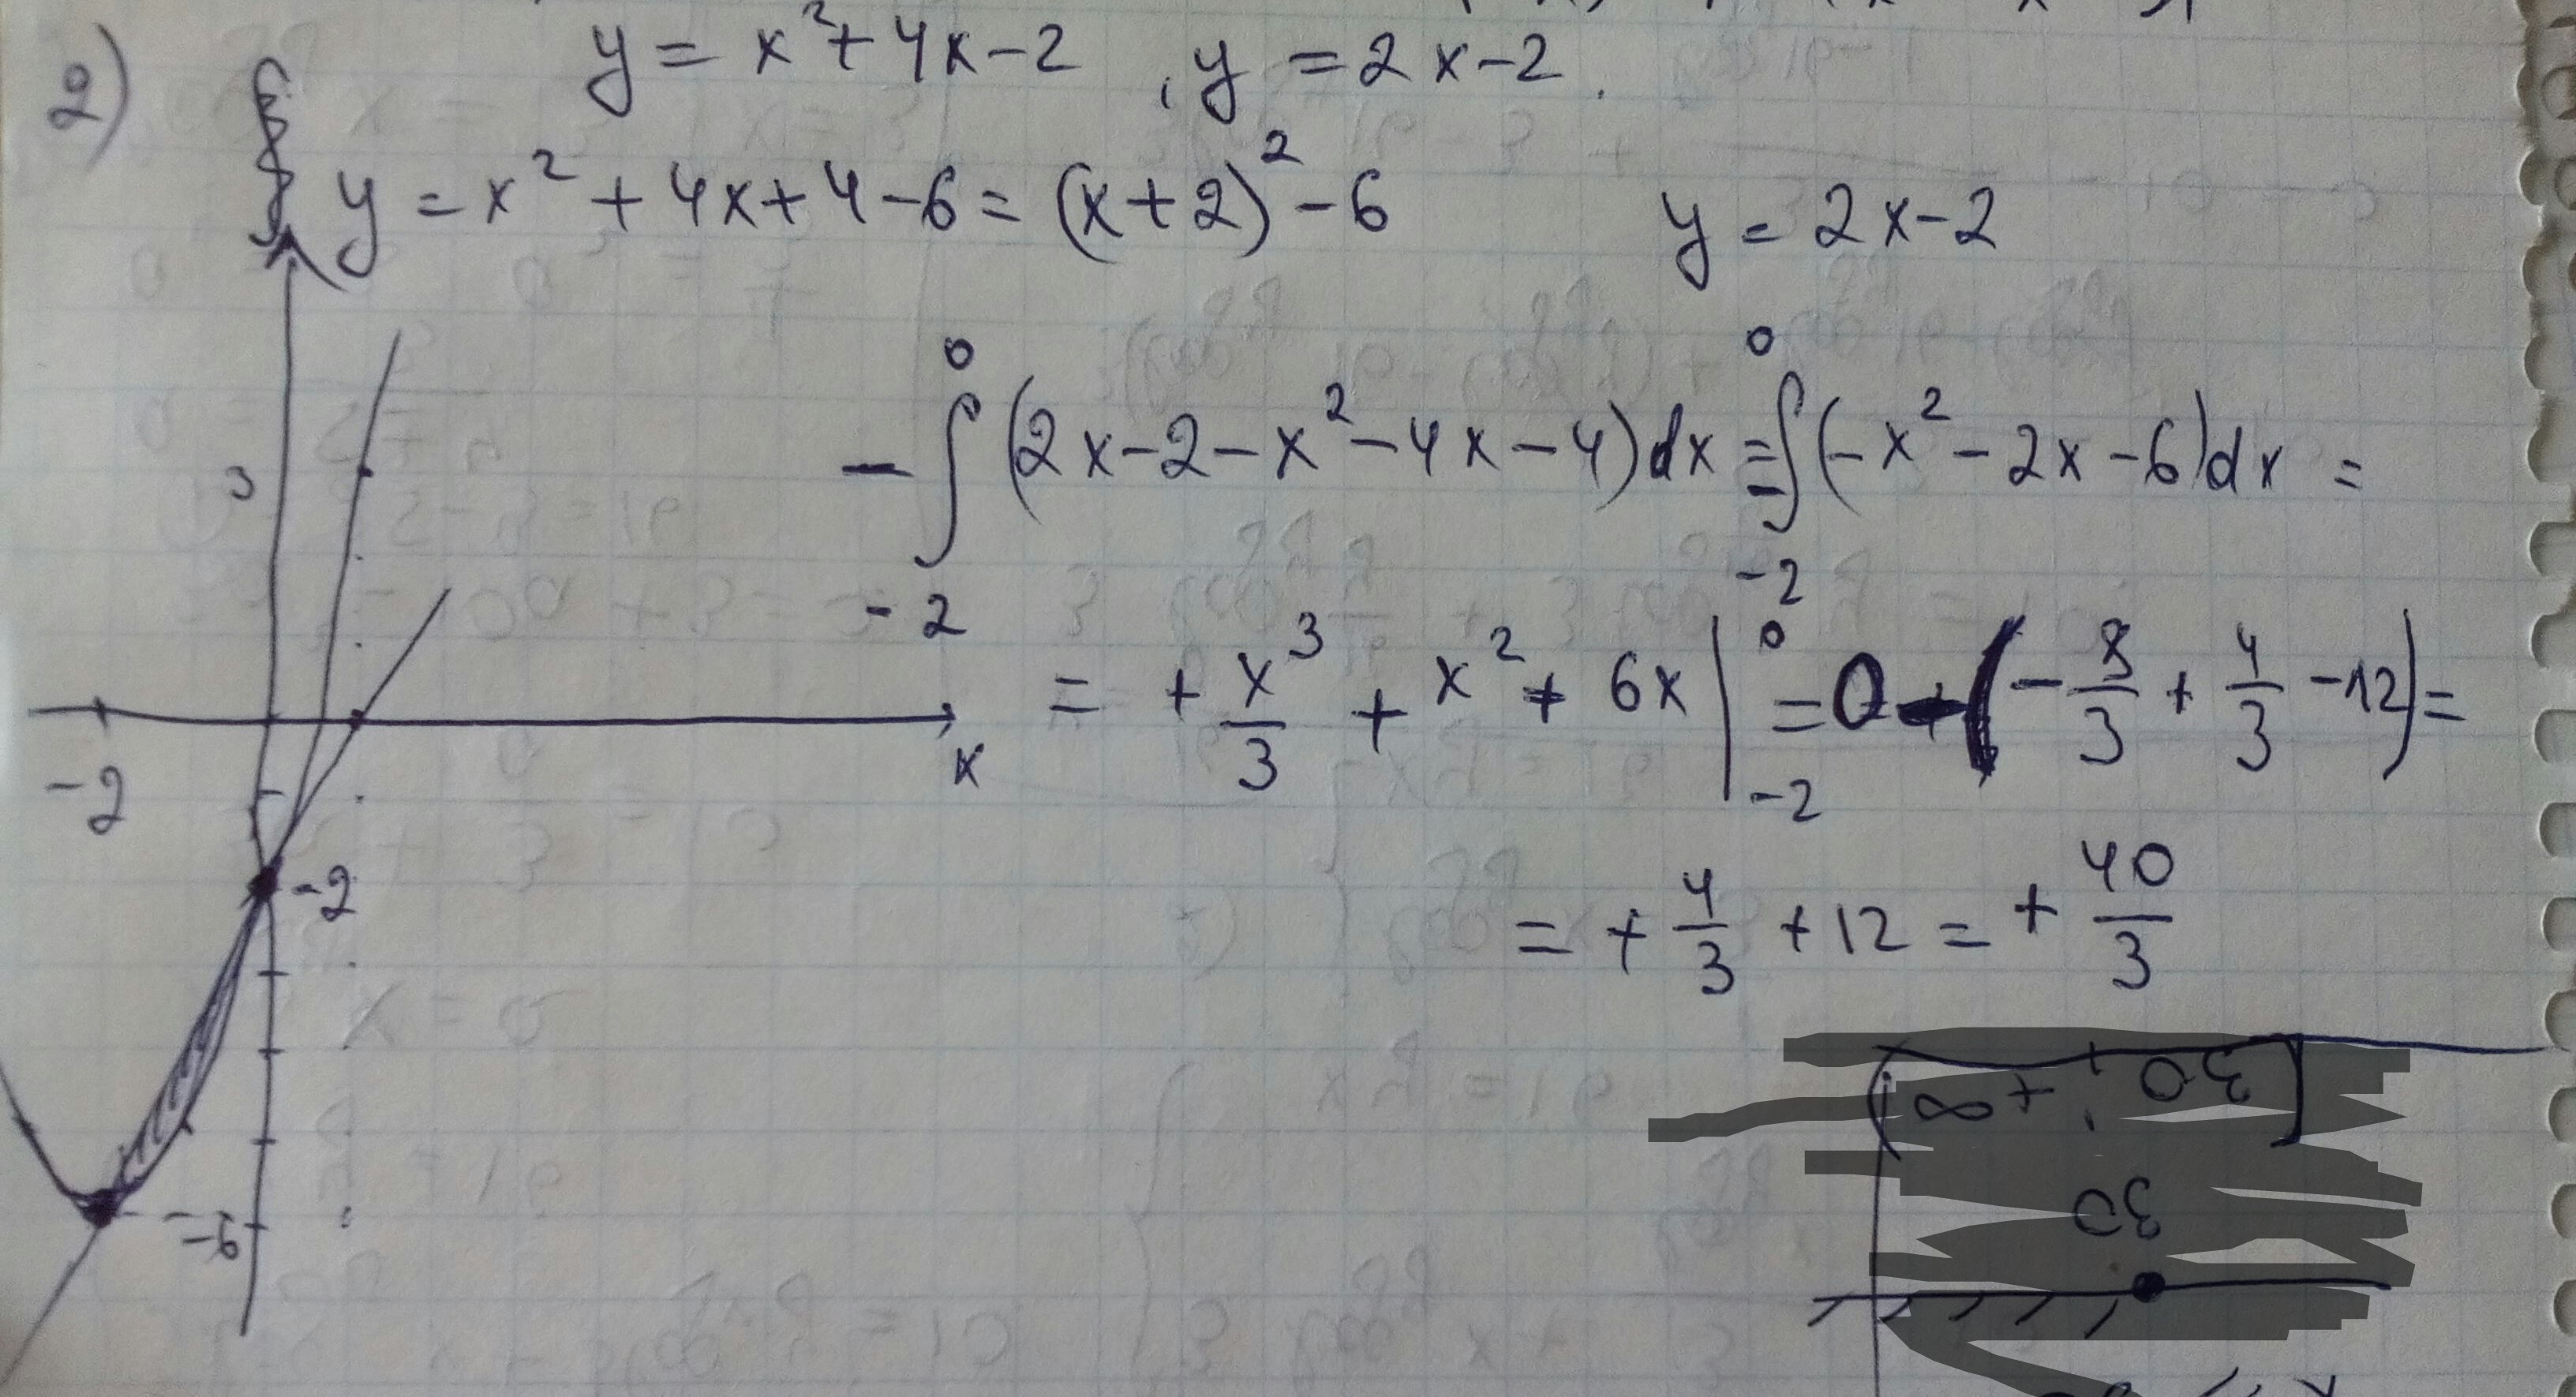 2) y = x² + 4x - 2 , y = 2x - 2 .
y = x² + 4x + 4 - 6 = (x + 2)² - 6    y = 2x - 2
- ∫_{-2}^{0} (2x - 2 - x² - 4x - 4) dx = - ∫_{-2}^{0} (-x² - 2x - 6) dx =
= + x³/3 + x² + 6x |_{-2}^{0} = 0 - (- 8/3 + 4/3 - 12) =
= + 4/3 + 12 = + 40/3
3
-2
x
-2
-6
[30 ; +∞)
30